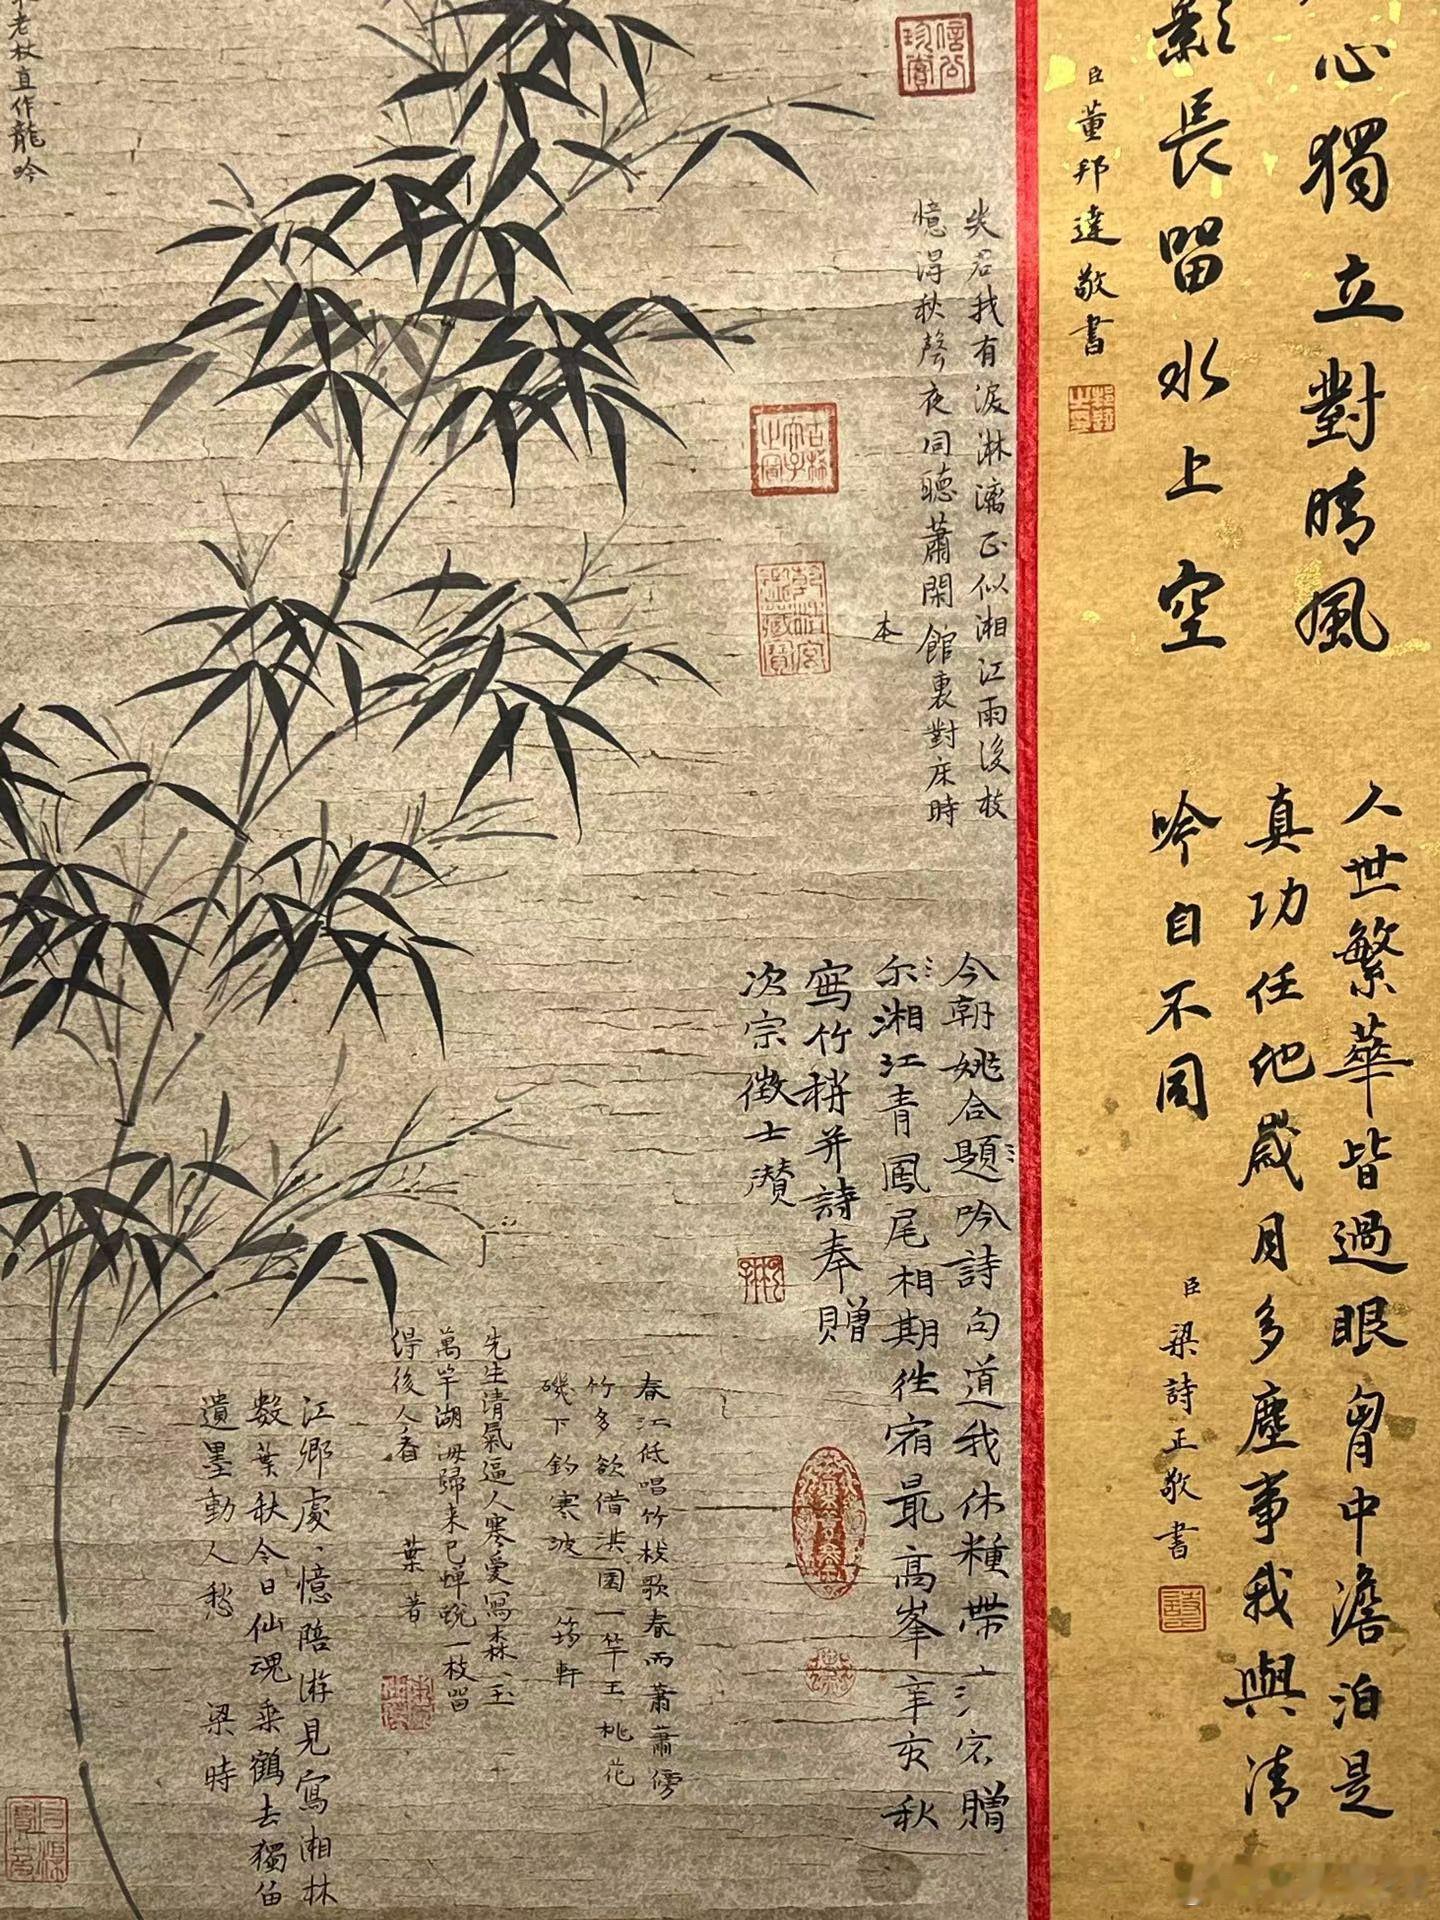 心獨立對晴風
影長留水上空
臣董邦達敬書
人世繁華皆過眼胷中澹泊是
真功任他歲月多塵事我與清
吟自不同
臣梁詩正敬書
失君我有淚淋漓正似湘江雨後枝
憶得秋聲夜同聽蕭閑館裏對床時
本
今朝姚合題吟詩句道我休糧帶
尓湘江青鳳尾相期徃宿最高峯辛亥秋
寫竹梢并詩奉贈
次宗徵士瓚
春江低唱竹枝歌春雨蕭蕭傍
竹多欲借淇園一竿玉桃花
磯下釣寒波 筠軒
先生清氣逼人寒愛寫森森玉
萬竿湖海歸来已蟬蛻一枝留
得後人看 葉著
江鄉處處憶陪游見寫湘林
數葉秋今日仙魂乘鶴去獨留
遺墨動人愁 梁時
老杖直作龍吟
信公珍賞
乾清宮鑑藏寶